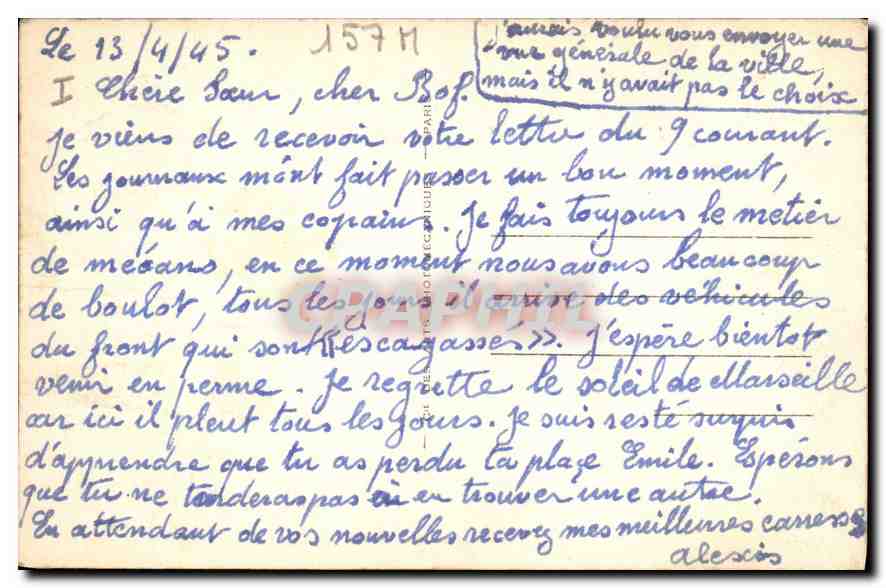 Le 13/4/45.
157 M
j'aurais voulu vous envoyer une
vue générale de la ville,
mais il n'y avait pas le choix
I Chère Sœur, cher Bof.
je viens de recevoir votre lettre du 9 courant.
Les journaux m'ont fait passer un bon moment,
ainsi qu'à mes copains. Je fais toujours le metier
de mécano, en ce moment nous avons beaucoup
de boulot, tous les jours il arrive des véhicules
du front qui sont «escagassé». J'espère bientot
venir en perme. Je regrette le soleil de Marseille
car ici il pleut tous les jours. Je suis resté surpris
d'apprendre que tu as perdu ta place Emile. Espérons
que tu ne tarderas pas à en trouver une autre.
En attendant de vos nouvelles recevez mes meilleures caresses
alexis
PARIS
GRAPHIL